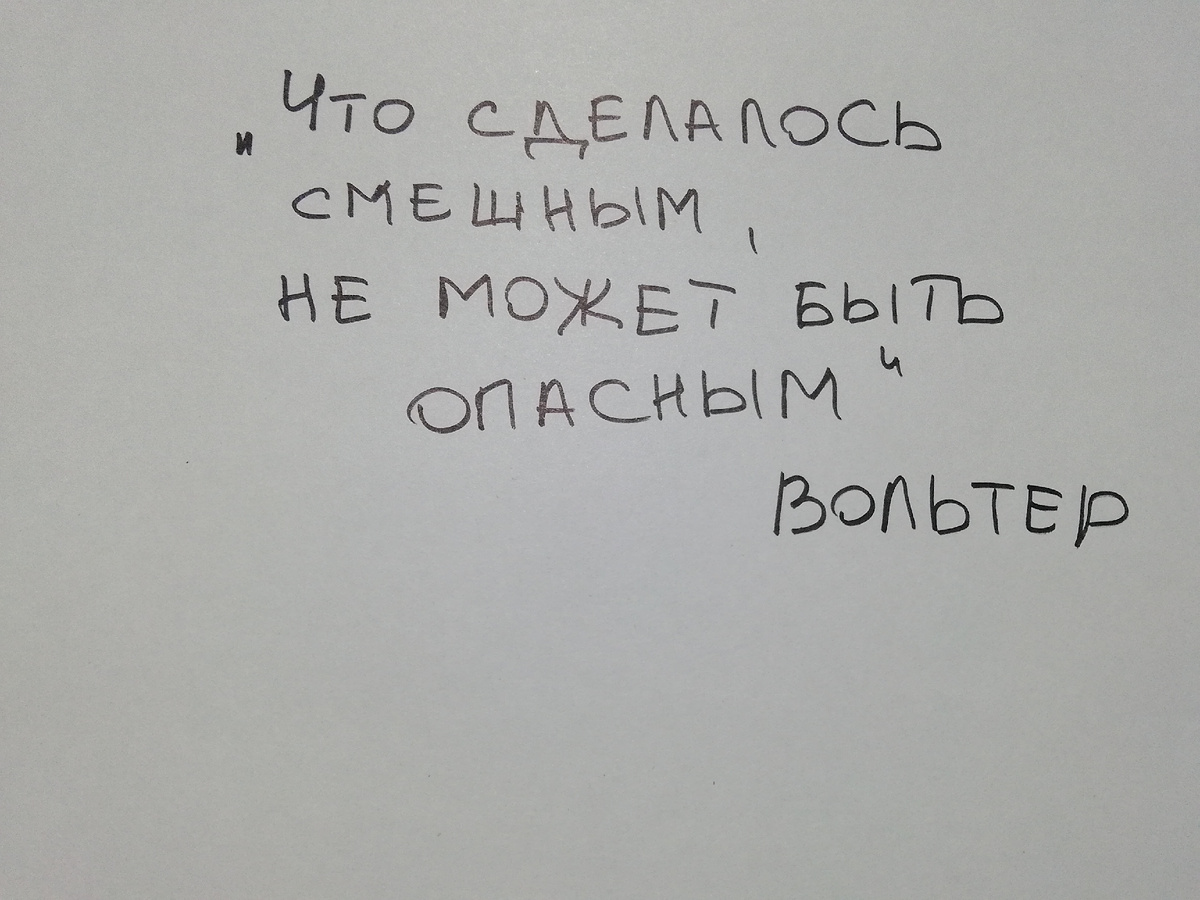 „Что сделалось
смешным,
не может быть
опасным“
Вольтер